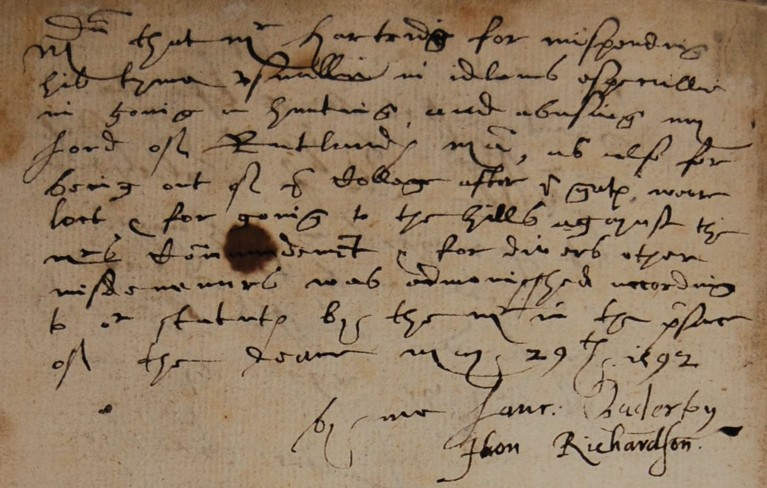 Mdū that mr Hartridg for mispending
his tyme usuallie in idlenes especiallie
in going a hunting, and abusing my
Lord of Rutlands mā, as also for
being out of ye Colledg after ye gates weare
lockt & for going to the hills against the
mrs Comaundemēt & for divers other
misdemenurs was admonisshed according
to or statuts by the mr in the psence
of the deane may 29th 1592
by me Laur: Chaderton
Jhon Richardson.